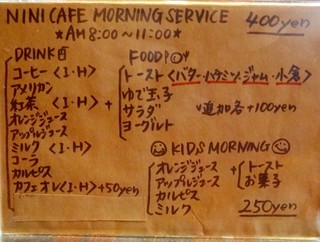 NINI CAFE MORNING SERVICE 400yen
*AM8:00~11:00*
DRINK
コーヒー <I・H>
アメリカン
紅茶 <I・H> +
オレンジジュース
アップルジュース
ミルク <I・H>
コーラ
カルピス
カフェオレ <I・H> +50yen
FOOD
トースト <バター・ ジャム・小倉>
ゆで玉子
サラダ
ヨーグルト
追加各+100yen
KIDS MORNING
オレンジジュース
アップルジュース
カルピス
ミルク
+ トースト
お菓子
250yen